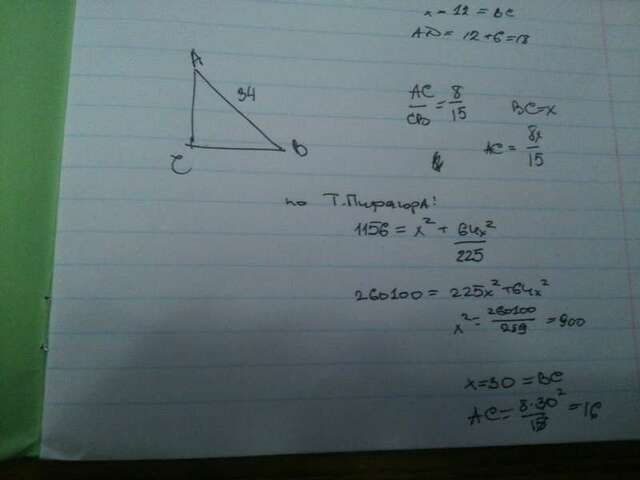 x = 12 = BC
AD = 12+6=18
A
34
C
B
AC/CB = 8/15
BC=x
AC = 8x/15
по Т.Пифагора:
1156 = x² + 64x²/225
260100 = 225x²+64x²
x² = 260100/289 = 900
x=30 = BC
AC = 8·30²/15 = 16